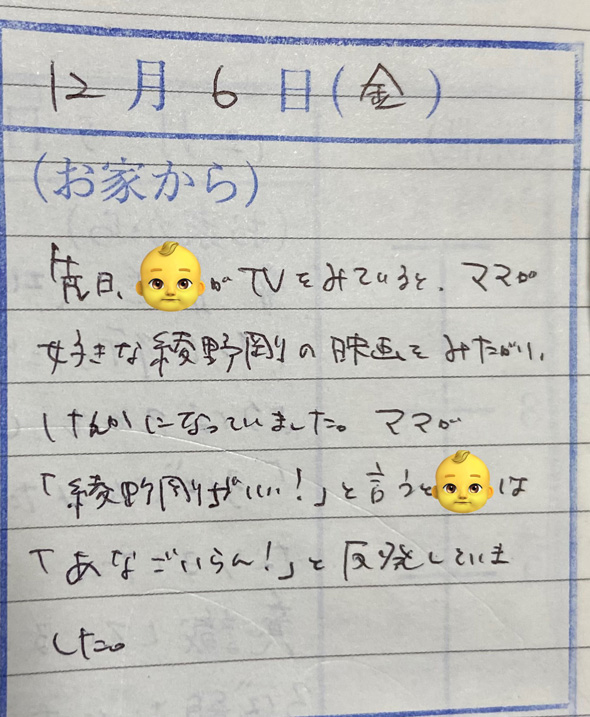 12月6日(金)
(お家から)
先日、がTVをみていると、ママが
好きな綾野剛の映画をみたがり、
けんかになっていました。ママが
「綾野剛がいい!」と言うとは
「あなごいらん!」と反発していま
した。